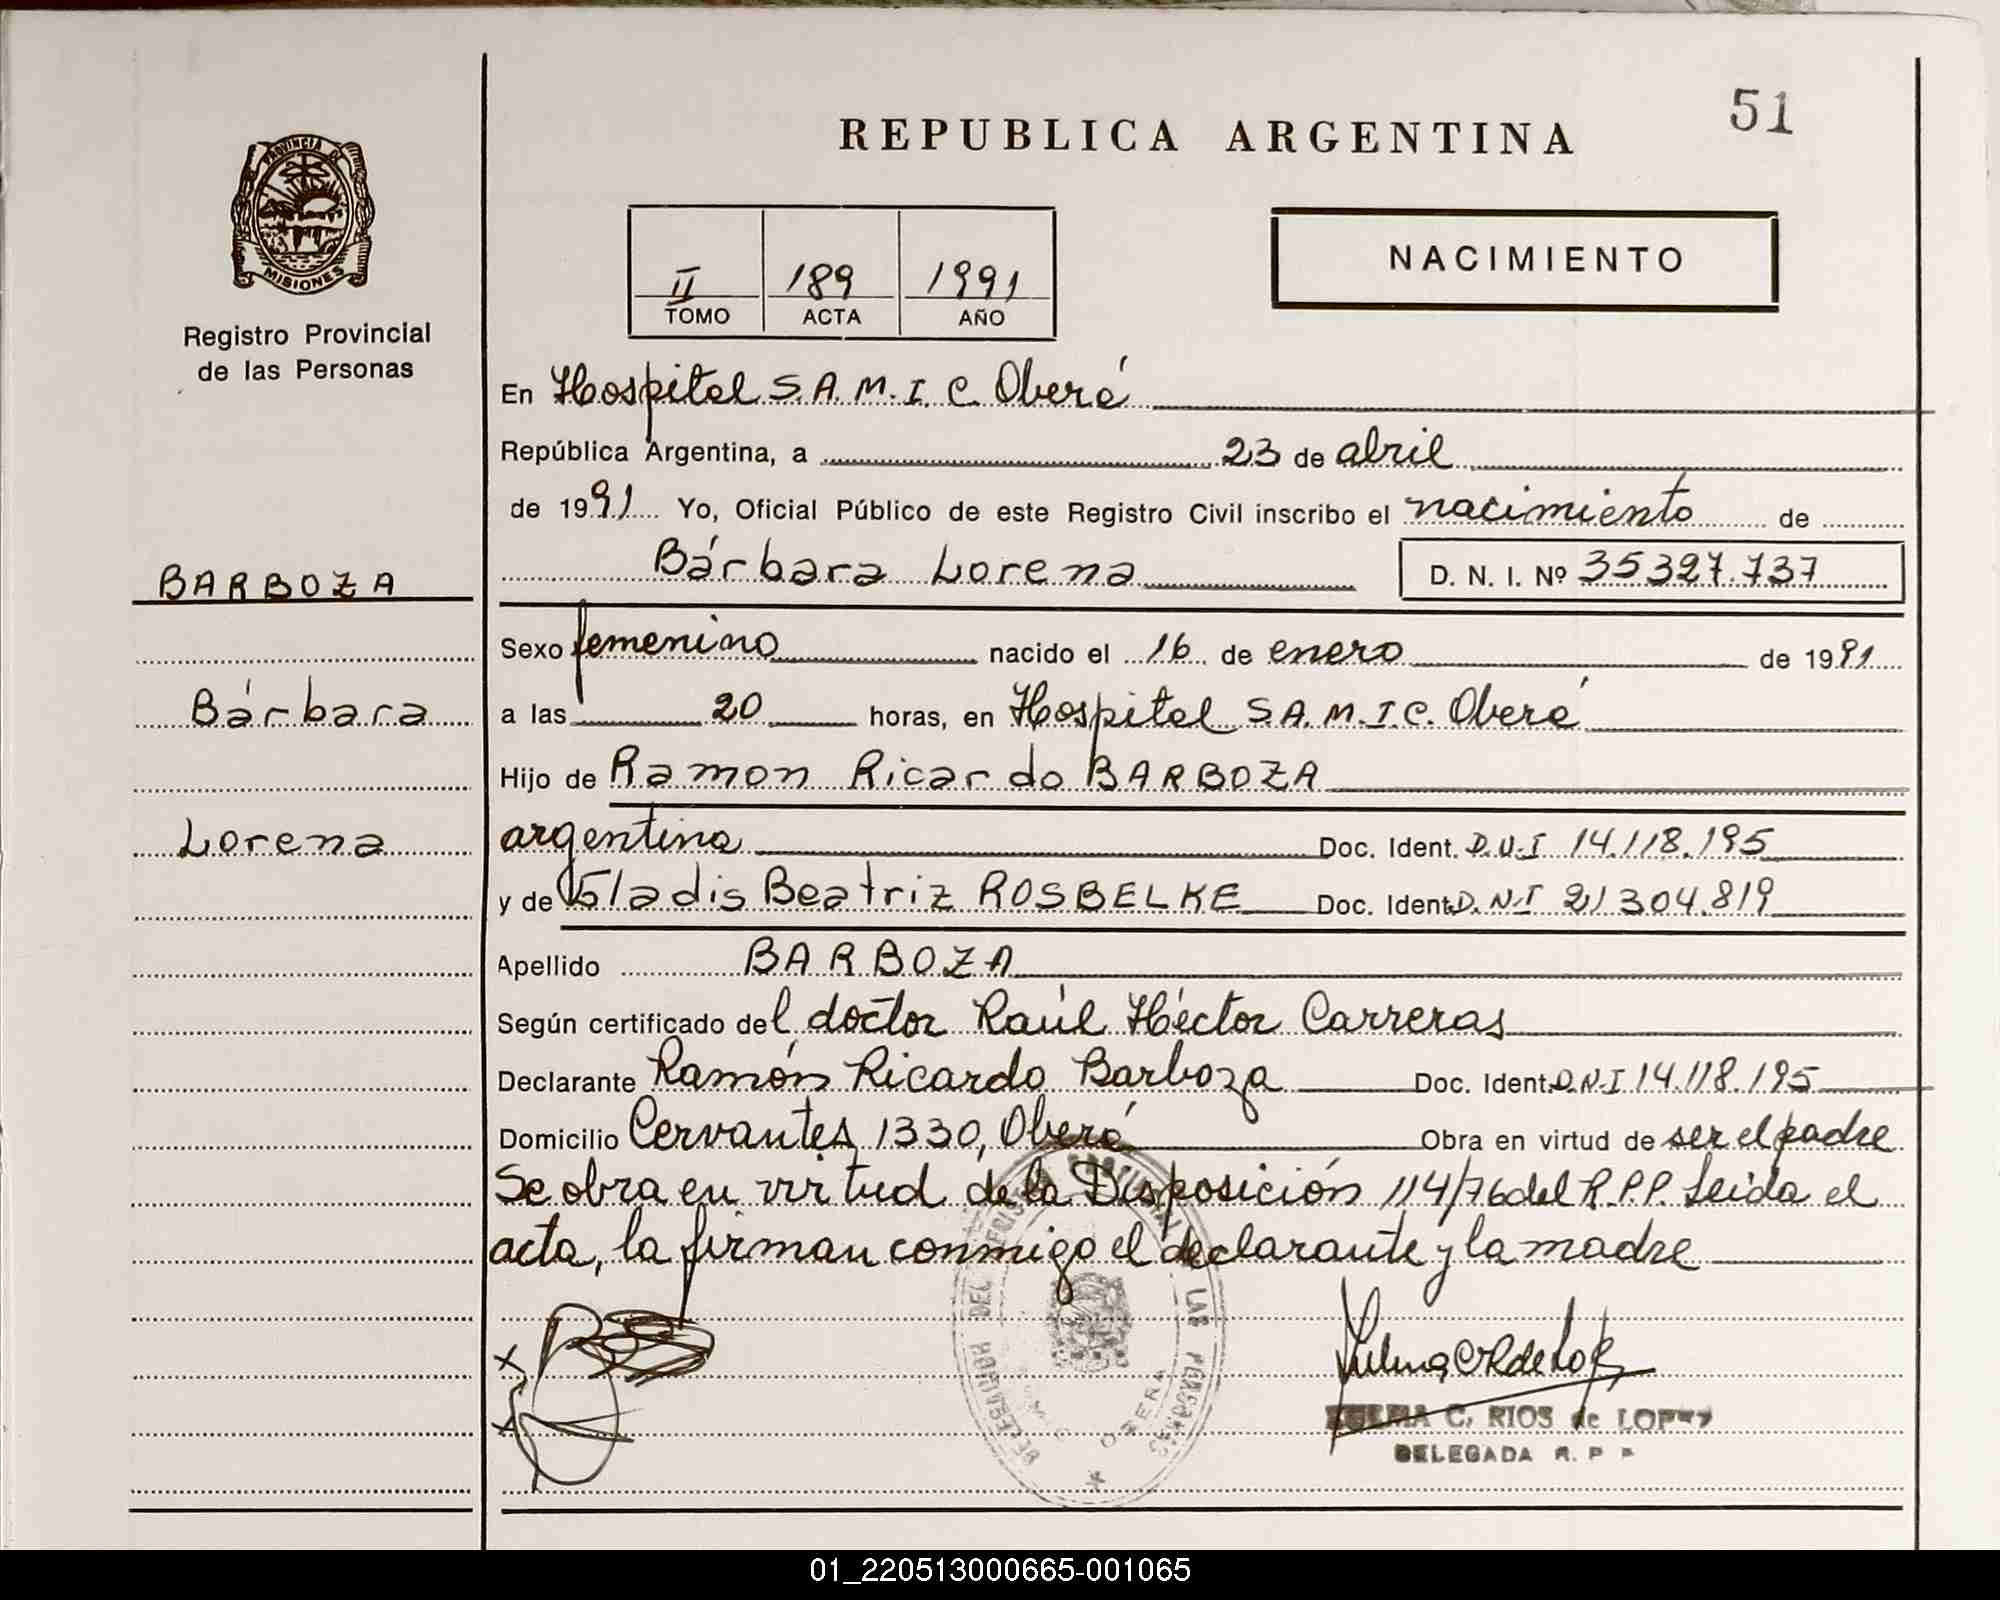 51
REPUBLICA ARGENTINA
PROVINCIA DE
MISIONES
Registro Provincial
de las Personas
NACIMIENTO
II 189 1991
TOMO ACTA AÑO
En Hospital S.A.M.I.C. Oberá
República Argentina, a 23 de abril
de 1991 Yo, Oficial Público de este Registro Civil inscribo el nacimiento de
Bárbara Lorena D. N. I. Nº 35327.737
BARBOZA
Sexo femenino nacido el 16 de enero de 1991
Bárbara
a las 20 horas, en Hospital S.A.M.I.C. Oberá
Hijo de Ramon Ricardo BARBOZA
Lorena
argentina Doc. Ident. D.N.I 14.118.195
y de Gladis Beatriz ROSBELKE Doc. Ident. D.N.I 21304.819
Apellido BARBOZA
Según certificado del doctor Raúl Héctor Carreras
Declarante Ramón Ricardo Barboza Doc. Ident. D.N.I 14.118.195
Domicilio Cervantes 1330, Oberá Obra en virtud de ser el padre
Se obra en virtud de la Disposición 114/76 del R.P.P. Leída el
acta, la firman conmigo el declarante y la madre
DEL LAS PERSONAS
OBERA
C. RIOS de LOPEZ
DELEGADA R. P P
01_220513000665-001065